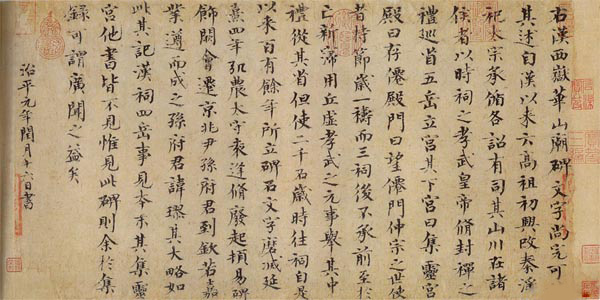 右漢西嶽華山廟碑文字尚完可
其述自漢以來云高祖初興改秦淫
祀太宗承循各詔有司其山川在諸
侯者以時祠之孝武皇帝脩封禪之
禮巡省五岳立宮其下宮曰集靈宮
殿曰存僊殿門曰望僊門仲宗之世使
者持節歲一禱而三祠後不承前至於
亡新寖用丘虛孝武之元事舉其中
禮從其省但使二千石歲時往祠自是
以來百有餘年所立碑石文字磨滅延
熹四年弘農太守袁逢脩廢起頓易碑
飾闕會遷京兆尹孫府君到欽若嘉
業遵而成之孫府君諱璆其大略如
此其記漢祠四岳事見本末其集靈
宮他書皆不見惟見此碑則余於集
錄可謂廣聞之益矣
治平元年閏月十六日書